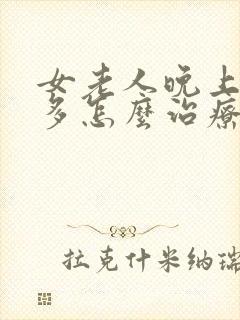 女老人晚上
多怎麼治療
拉克什米納瑞